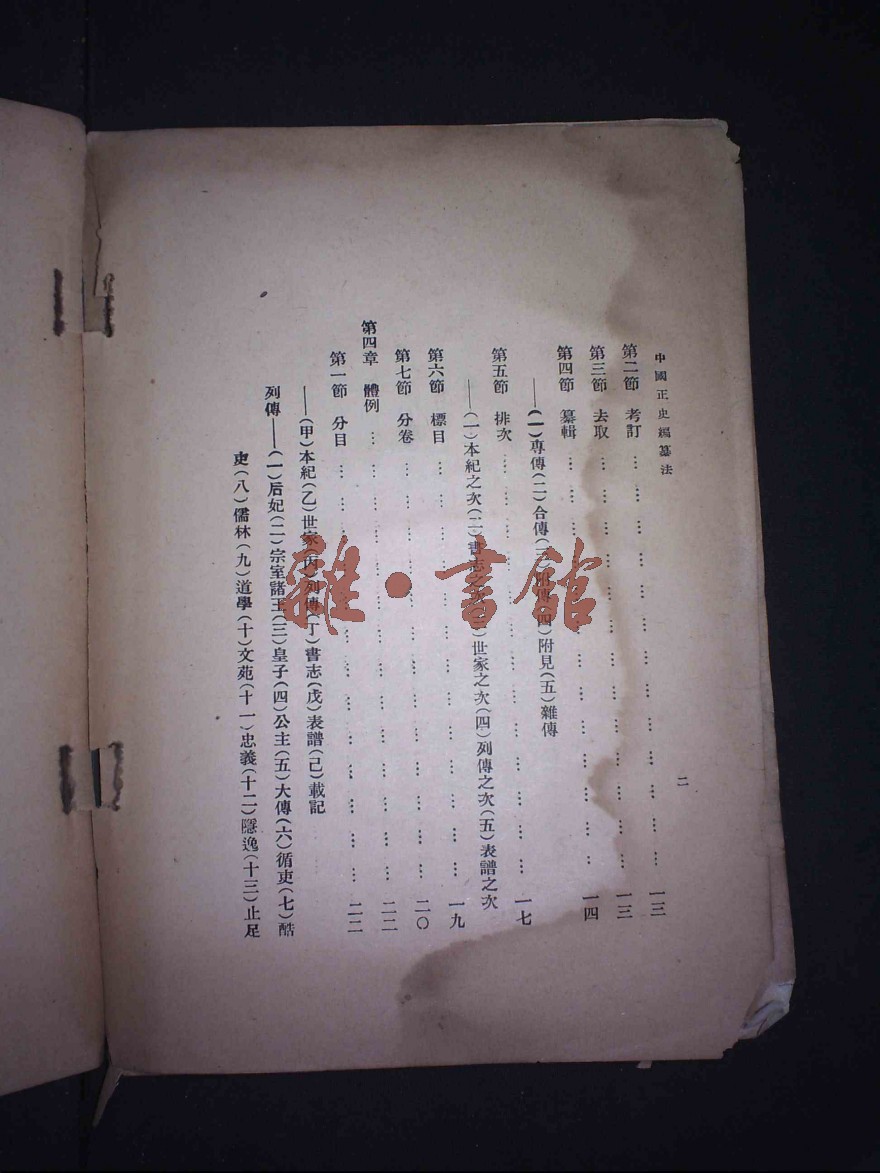 中國正史編纂法
二
第二節 考訂 … … … … … … … … … … … … 一三
第三節 去取 … … … … … … … … … … … … 一三
第四節 纂輯 … … … … … … … … … … … … 一四
——(一)專傳(二)合傳(三) 傳(四)附見(五)雜傳
第五節 排次 … … … … … … … … … … … … 一七
——(一)本紀之次(二)書志之次(三)世家之次(四)列傳之次(五)表譜之次
第六節 標目 … … … … … … … … … … … … 一九
第七節 分卷 … … … … … … … … … … … … 二〇
第四章 體例 … … … … … … … … … … … … 二二
第一節 分目 … … … … … … … … … … … … 二二
——(甲)本紀(乙)世家(丙)列傳(丁)書志(戊)表譜(己)載記
列傳——(一)后妃(二)宗室諸王(三)皇子(四)公主(五)大傳(六)循吏(七)酷
吏(八)儒林(九)道學(十)文苑(十一)忠義(十二)隱逸(十三)止足
雜·書館